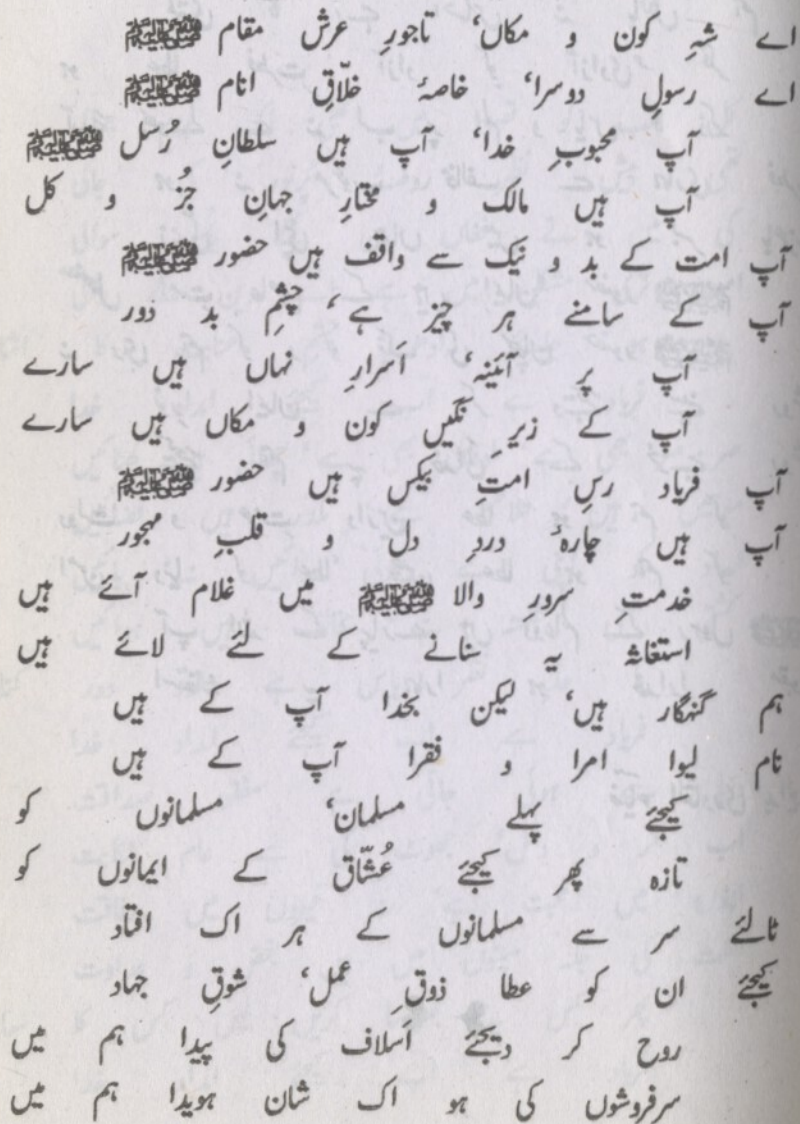 اے شہِ کون و مکاں، تاجورِ عرش مقام ﷺ
اے رسولِ دوسرا، خاصۂ خلّاقِ انام ﷺ
آپ محبوبِ خدا، آپ ہیں سلطانِ رُسل ﷺ
آپ ہیں مالک و مختارِ جہانِ جُز و کل
آپ امت کے بد و نیک سے واقف ہیں حضور ﷺ
آپ کے سامنے ہر چیز ہے، چشمِ بد دور
آپ پر آئینہ، اَسرارِ نہاں ہیں سارے
آپ کے زیرِ نگیں کون و مکاں ہیں سارے
آپ فریاد رسِ امتِ بیکس ہیں حضور ﷺ
آپ ہیں چارۂ دردِ دل و قلبِ مہجور
خدمتِ سرورِ والا ﷺ میں غلام آئے ہیں
استغاثہ یہ سنانے کے لئے لائے ہیں
ہم گنہگار ہیں، لیکن بخدا آپ کے ہیں
نام لیوا امرا و فقرا آپ کے ہیں
کیجئے پہلے مسلمان، مسلمانوں کو
تازہ پھر کیجئے عُشّاق کے ایمانوں کو
ٹالئے سر سے مسلمانوں کے ہر اک افتاد
کیجئے ان کو عطا ذوقِ عمل، شوقِ جہاد
روح کر دیجئے اَسلاف کی پیدا ہم میں
سرفروشوں کی ہو اک شان ہویدا ہم میں